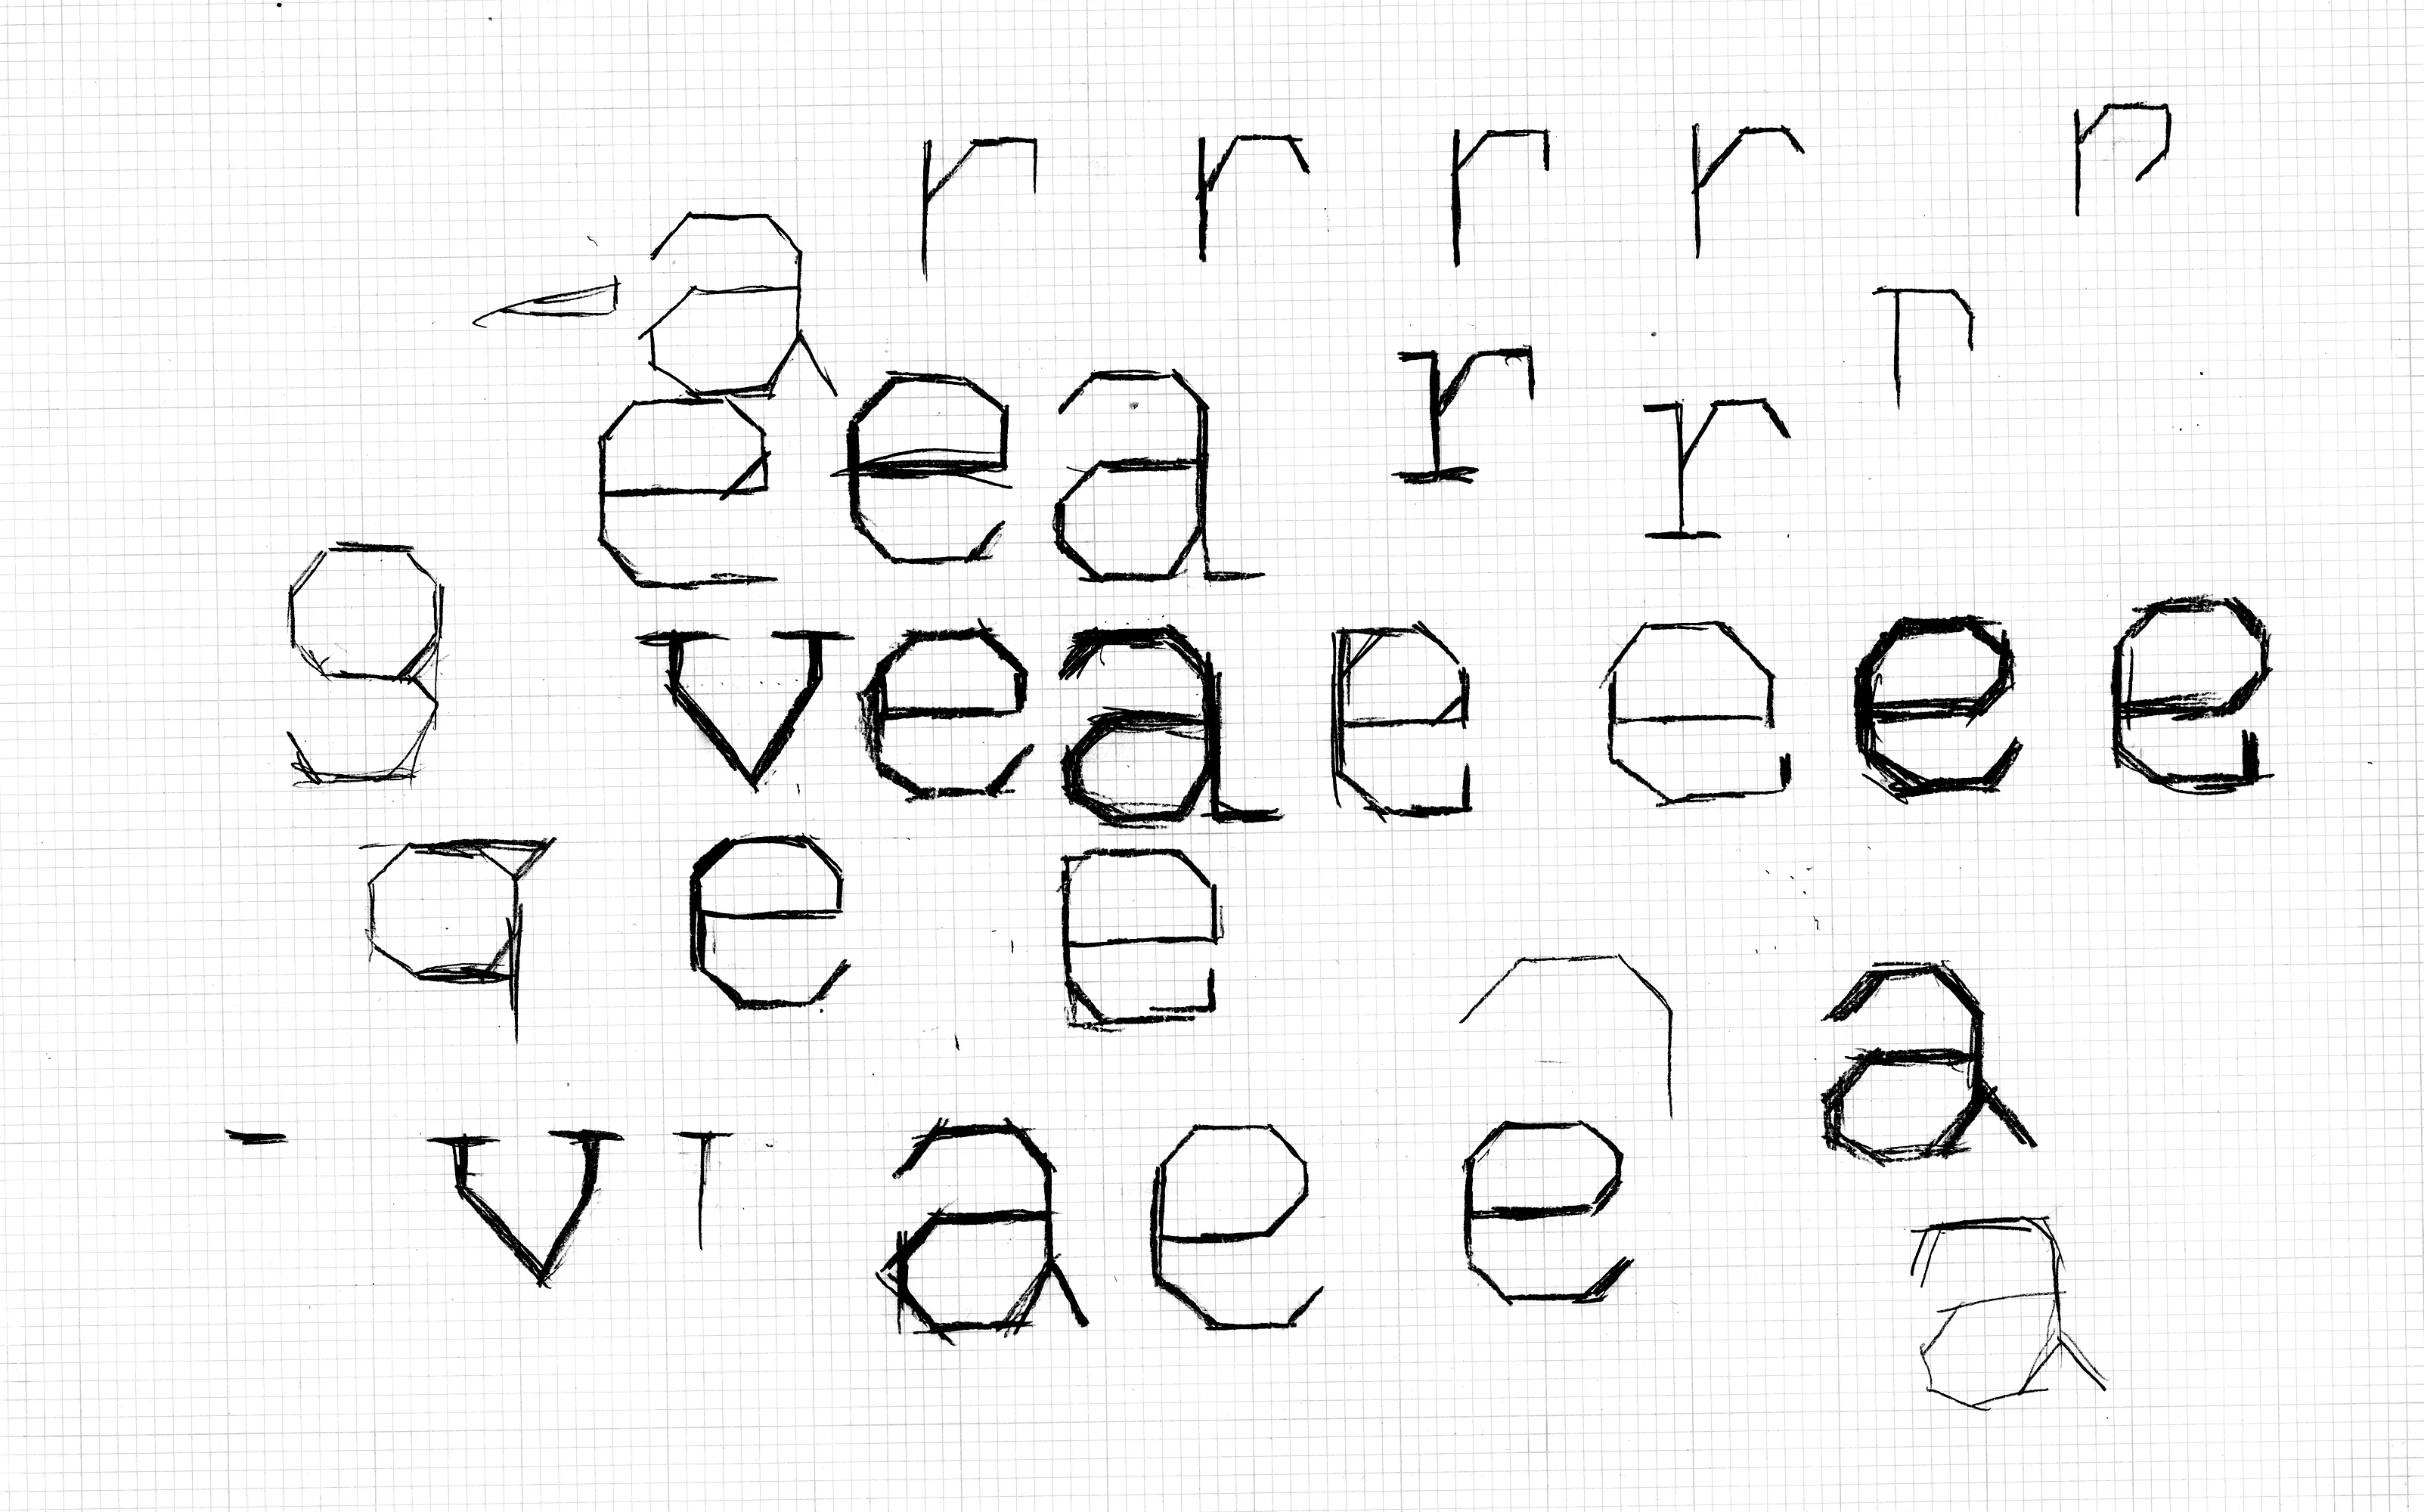 r r r r r
a r
e e a r r
g v e a e e e e
q e e a
v a e e a